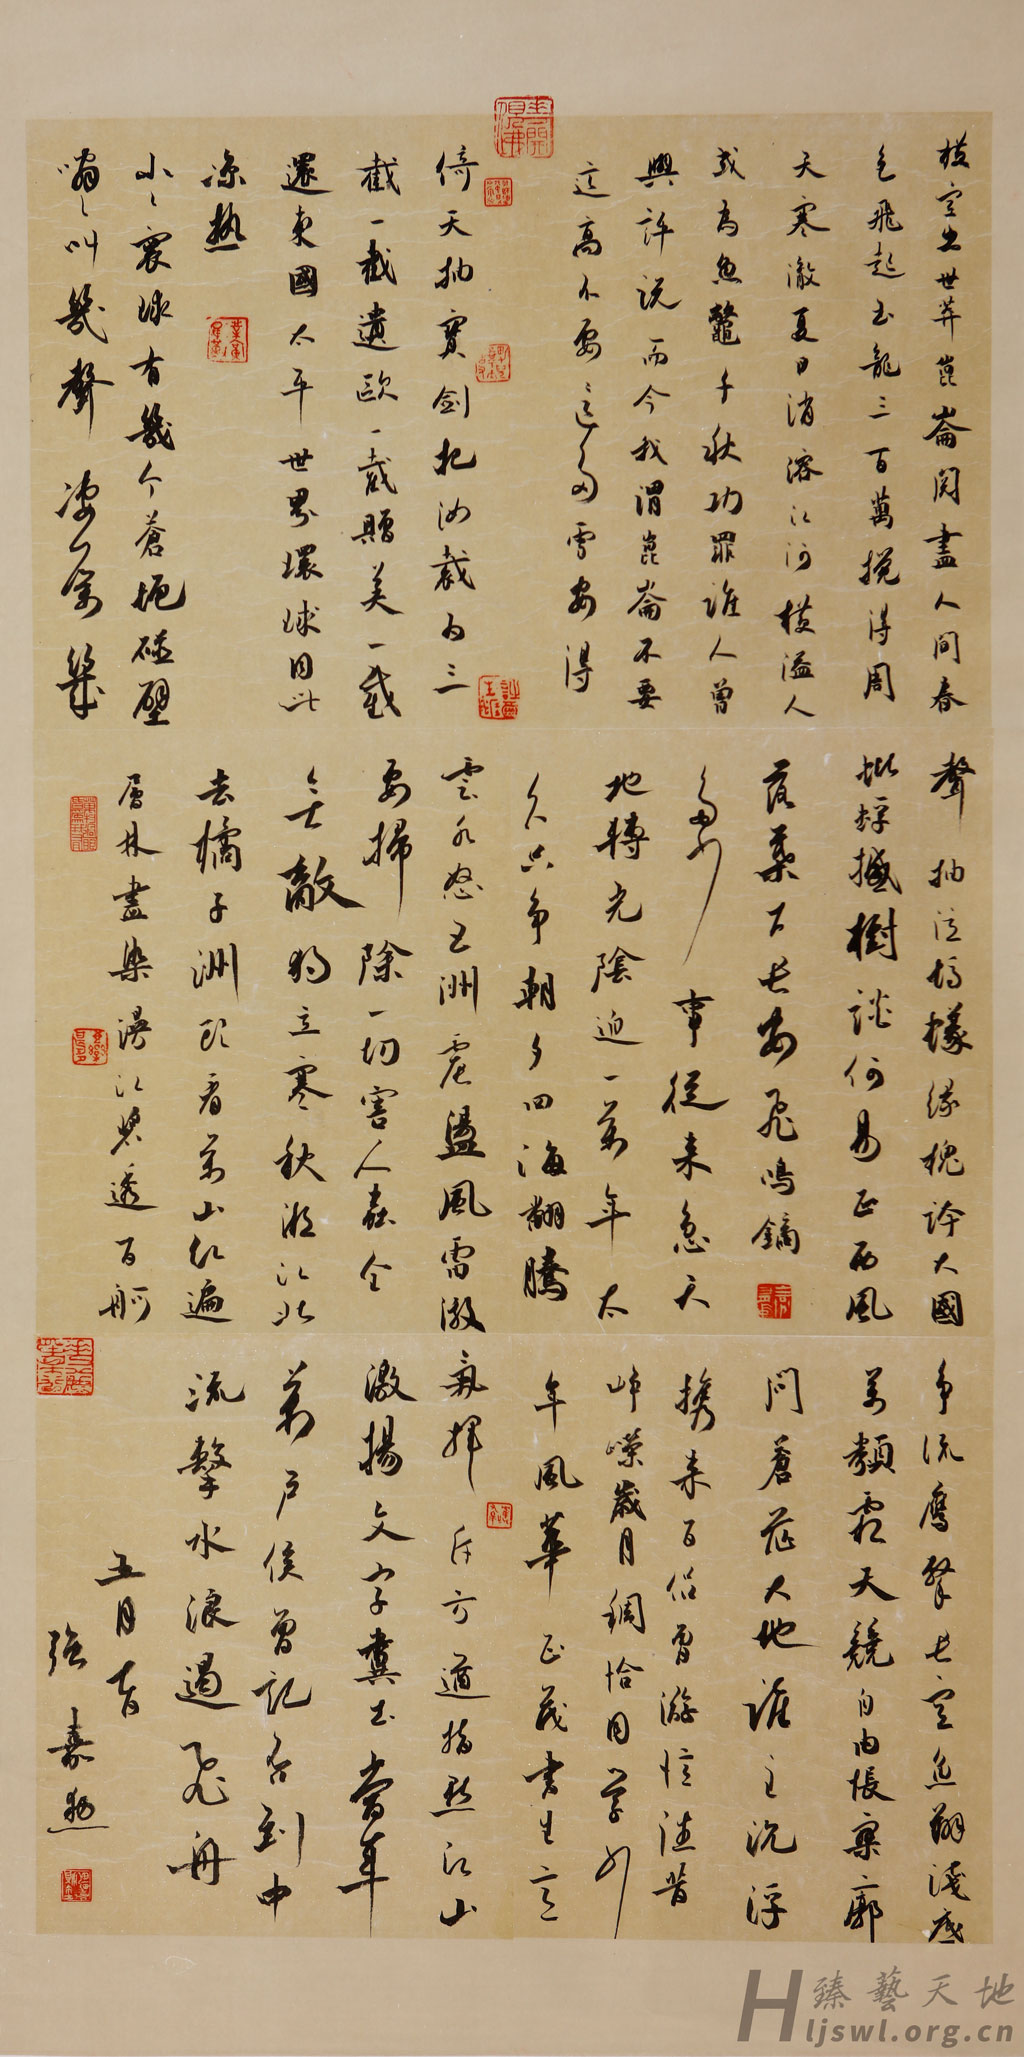 橫空出世莽崑崙閱盡人間春
色飛起玉龍三百萬攪得周
天寒澈夏日消溶江河橫溢人
或為魚鱉千秋功罪誰人曾
與評說而今我謂崑崙不要
這高不要這多雪安得
倚天抽寶劍把汝裁為三
截一截遺歐一截贈美一截
還東國太平世界環球同此
涼熱
小〻寰球有幾个蒼蠅碰壁
嗡〻叫幾聲淒厲幾
聲抽泣螞蟻緣槐誇大國
蚍蜉撼樹談何易正西風
落葉下長安飛鳴鏑
多少事從來急天
地轉光陰迫一萬年太
久只爭朝夕四海翻騰
雲水怒五洲震盪風雷激
要掃除一切害人蟲全
無敵獨立寒秋湘江北
去橘子洲頭看萬山紅遍
層林盡染漫江碧透百舸
爭流鷹擊長空魚翔淺底
萬類霜天競自由悵寥廓
問蒼茫大地誰主沉浮
攜來百侶曾游憶往昔
崢嶸歲月稠恰同學少
年風華正茂書生意
氣揮斥方遒指點江山
激揚文字糞土當年
萬戶侯曾記否到中
流擊水浪遏飛舟
五月
強嘉
臻藝天地
Hljswl.org.cn